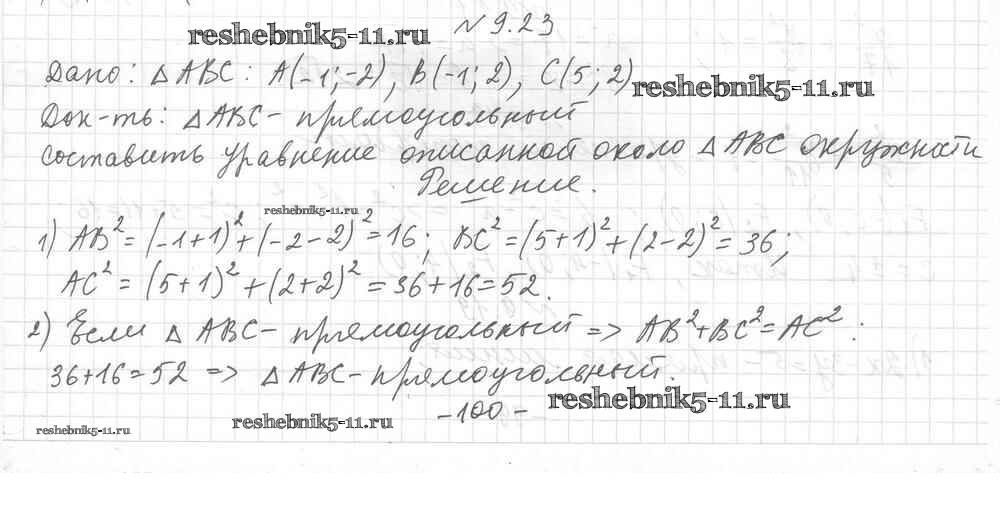 reshebnik5-11.ru № 9.23
Дано: △ ABC: A(-1;-2), B(-1; 2), C(5; 2) reshebnik5-11.ru
Док-ть: △ ABC - прямоугольный
составить уравнение описанной около △ ABC окружности
Решение.
reshebnik5-11.ru
1) AB² = (-1+1)² + (-2-2)² = 16; BC² = (5+1)² + (2-2)² = 36;
AC² = (5+1)² + (2+2)² = 36+16 = 52.
2) Если △ ABC - прямоугольный => AB² + BC² = AC² :
36+16 = 52 => △ ABC - прямоугольный.
- 100 - reshebnik5-11.ru
reshebnik5-11.ru reshebnik5-11.ru